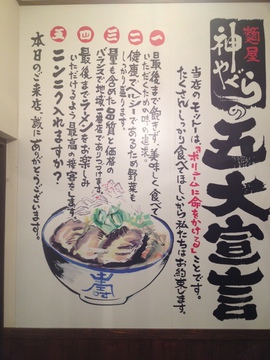 麺屋
神やぐらの五大宣言
当店のモットーは、『ボリュームに命をかける』ことです。
たくさんしっかり食べてほしいから私たちはお約束します。
一 最後まで飽きず、美味しく食べて
いただくための味の追求。
二 健康でヘルシーであるため野菜も
しっかり盛ります。
三 量も含めた品質と価格の
バランスで地域一番店でありつづけます。
四 最後までラーメンをお楽しみ
いただけるよう最高の接客をします。
五 ニンニク入れますか?
本日のご来店、誠にありがとうございます。